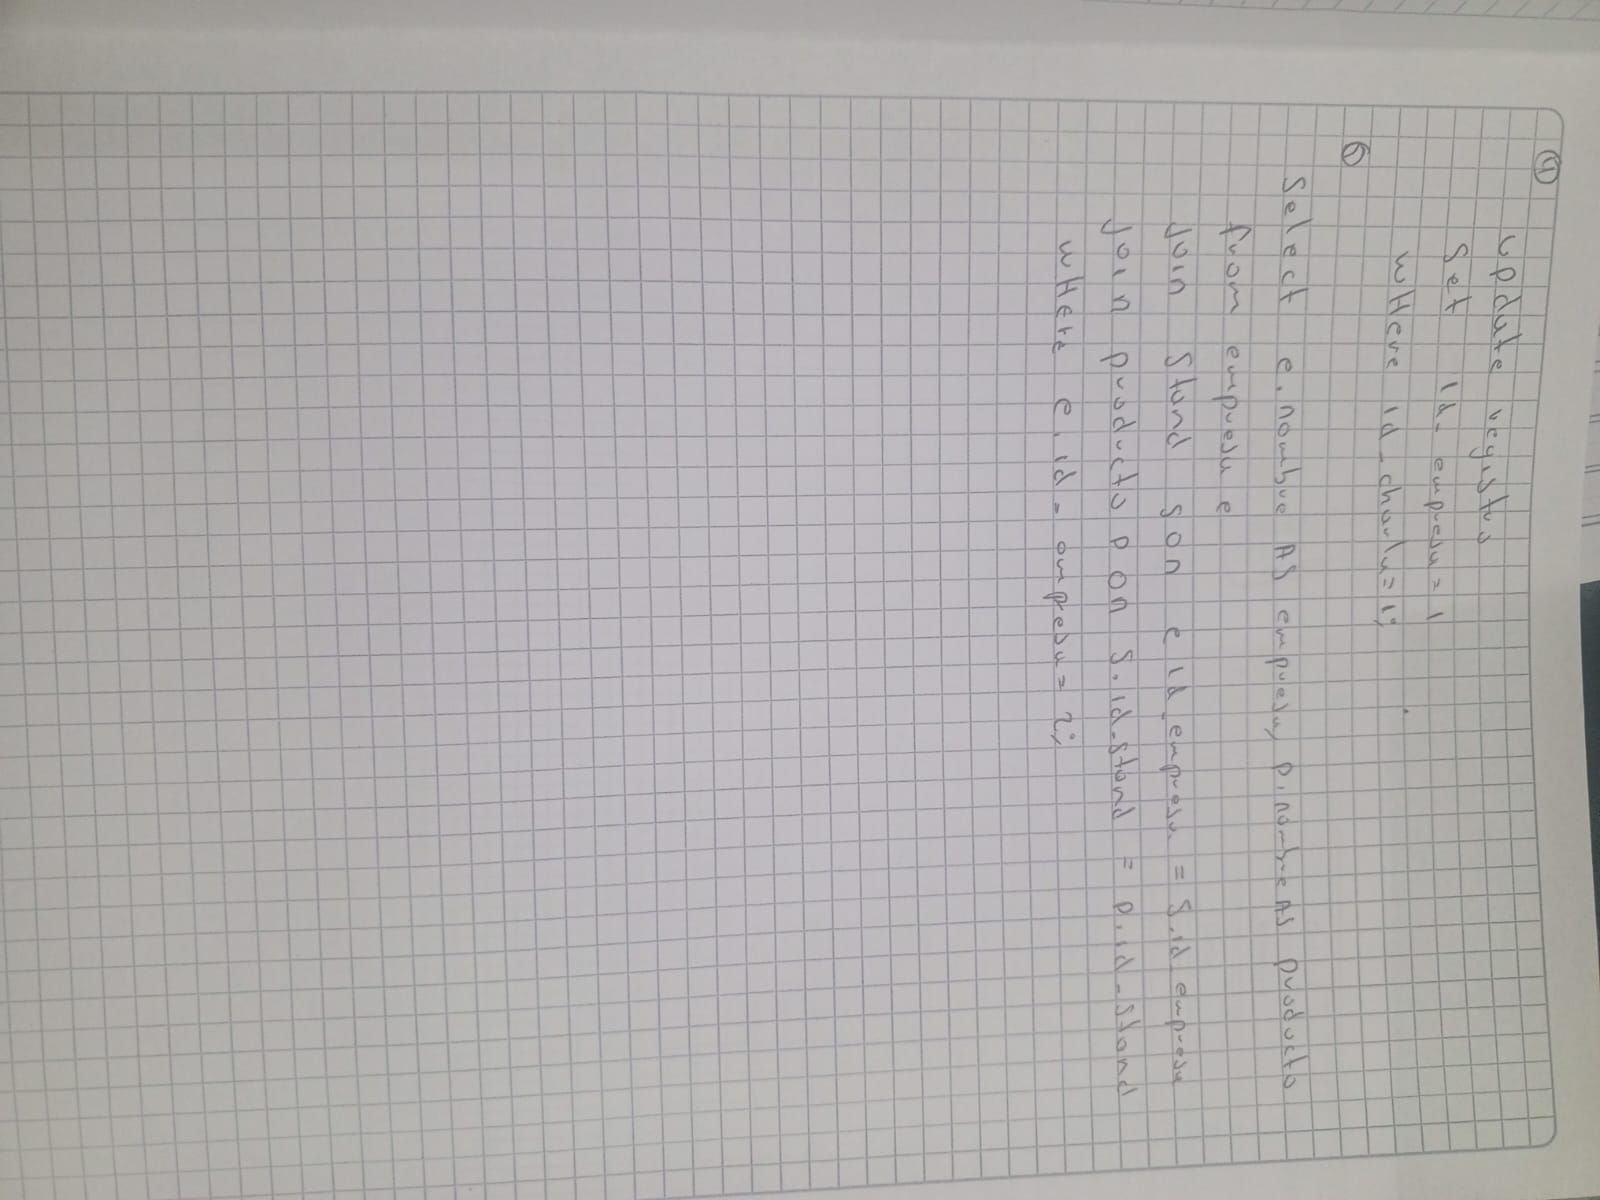 ④
update registro
Set id_empresa = 1
wHere id_charla = 1;
⑥
Select e.nombre AS empresa, p.nombre AS producto
from empresa e
join Stand S on e.id_empresa = S.id_empresa
join producto p on S.id_Stand = p.id_Stand
wHere e.id_empresa = 2;